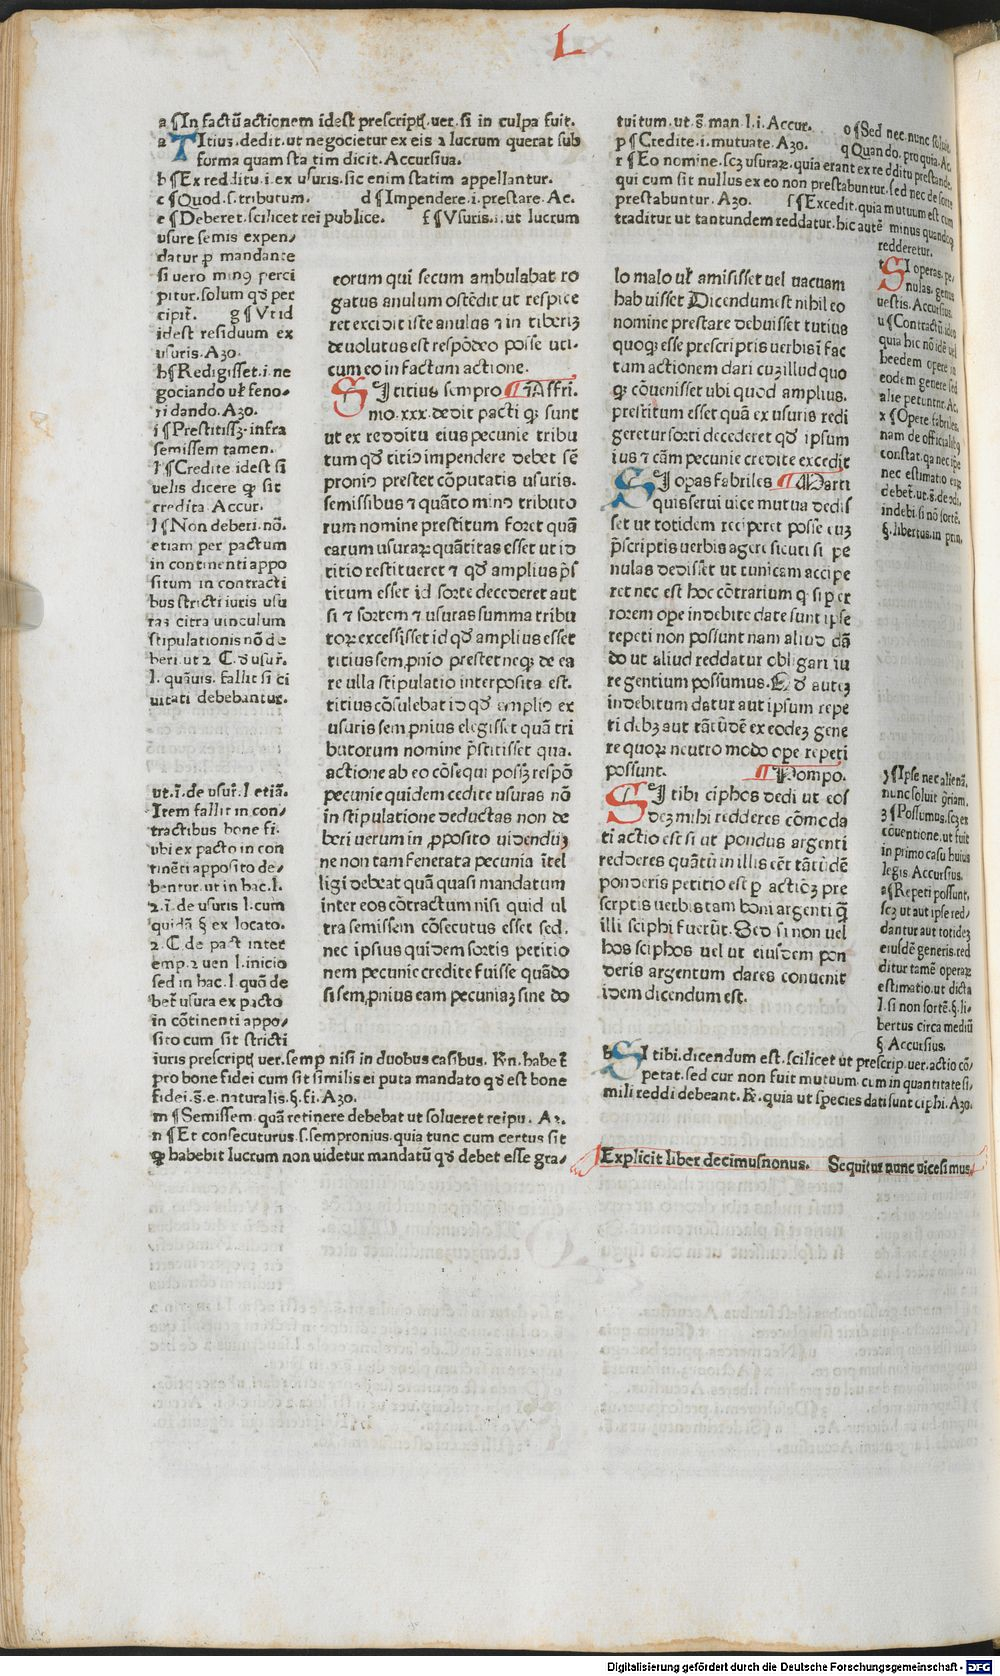 L
a ¶In factū actionem idest prescriptꝭ.uer.si in culpa fuit.
a TItius.dedit.ut negocietur ex eis ⁊ lucrum querat sub
forma quam sta tim dicit.Accursius.
b¶Ex redditu.i.ex usuris.sic enim statim appellantur.
c¶Quod.s.tributum. d¶Impendere.i.prestare.Ac.
e¶Deberet.scilicet rei publice. f¶Vsuris.i.ut lucrum
usure semis expen/
datur ꝑ mandante
si uero minꝰ perci
pitur.solum qđ per
cipit̄. g¶Vt id
idest residuum ex
usuris.Azo.
h¶Redigisset.i.ne
gociando uƚ feno/
ri dando.Azo.
i¶Prestitissꝫ.infra
semissem tamen.
l¶Credite idest si
uelis dicere ꝙ sit
credita Accur.
l¶Non deberi.nō.
etiam per pactum
in continenti appo
situm in contracti
bus stricti iuris usu
ras citra uinculum
stipulationis nō de
beri.ut ⁊ C.đ usur̄.
l.quāuis.fallit si ci
uitati debebantur.
ut.ī.de usur̄.l etiā.
Item fallit in con/
tractibus bone fi.
ubi ex pacto in con
tinēti apposito de/
bentur.ut in hac.l.
⁊.ī.de usuris l.cum
quidā § ex locato.
⁊.C.de pact inter
emp.⁊ uen l.inicio
sed in hac.l.quō de
bet̄ usura ex pacto
in cōtinenti appo/
sito cum sit stricti
iuris prescriptꝭ uer.semp nisi in duobus casibus. Rn.habet̄
pro bone fidei cum sit similis ei puta mandato qđ est bone
fidei.s̄.e.naturalis.§.fi.Azo.
m¶Semissem.quā retinere debebat ut solueret reipu. Az.
n¶Et consecuturus.s.sempronius.quia tunc cum certus sit
ꝙ habebit lucrum non uidetur mandatū qđ debet esse gra/
eorum qui secum ambulabat ro
gatus anulum ostēdit ut respice
ret excidit iste anulus ⁊ in tiberiꝫ
deuolutus est respōdeo posse uti.
cum eo in factum actione.
SI titius sempro ¶Affri.
nio.xxx.dedit pacti ꝙ sunt
ut ex redditu eius pecunie tribu
tum qđ titio impendere debet sē
pronio prestet cōputatis usuris.
semissibus ⁊ quāto minꝰ tributo
rum nomine prestitum foret quā
earum usuraꝝ quātitas esset ut id
titio restitueret ⁊ qđ amplius p̄s
titum esset id sorte decederet aut
si ⁊ sortem ⁊ usuras summa tribu
toꝝ excessisset id qđ amplius esset
titius sempnio prestet neqꝫ de ea
re ulla stipulatio interposita est.
titius cōsulebat id qđ amplio ex
usuris sempnius elegisset quā tri
butorum nomine p̄stitisset qua.
actione ab eo cōsequi posꝫ respō
pecunie quidem cedite usuras nō
in stipulatione deductas non de
beri uerum in proposito uidenduꝫ
ne non tam fenerata pecunia ītel
ligi debeat quā quasi mandatum
inter eos cōtractum nisi quid ul
tra semissem cōsecutus esset sed.
nec ipsius quidem sortis petitio
nem pecunie credite fuisse quādo
si sempnius eam pecuniaꝫ sine do
tuitum.ut.s̄.man.l.i.Accur. o¶Sed nec.nunc soluit.
p¶Credite.i.mutuate.Azo. q Quando.pro quia.Ac.
r¶Eo nomine.scꝫ usuraꝝ.quia erant ex redditu prestande.
qui cum sit nullus ex eo non prestabuntur.sed nec de sorte
prestabuntur.Azo. s¶Excedit.quia mutuum est cum
traditur ut tantundem reddatur.hic autē minus quandoqꝫ
redderetur.
lo malo uƚ amisisset uel uacuam
habuisset Dicendum est nihil eo
nomine prestare debuisset tutius
quoqꝫ esse prescriptis uerbis ī fac
tum actionem dari cuꝫ illud quo
qꝫ cōuenisset ubi quod amplius.
prestitum esset quā ex usuris redi
geretur sorti decederet qđ ipsum
ius ⁊ cām pecunie credite excedit
SI opas fabriles ¶Marti
quis serui uice mutua dedis
set ut totidem reciperet posse cuꝫ
p̄scriptis uerbis agere sicuti si pe
nulas dedisset ut tunicam accipe
ret nec est hoc cōtrarium q si per
rorem ope indebite date sunt ipse
repeti non possunt nam aliud dā
do ut aliud reddatur obligari iu
re gentium possumus.Qđ auteꝫ
indebitum datur aut ipsum repe
ti debꝫ aut tātūdē ex eodeꝫ gene
re quoꝝ neutro modo ope repeti
possunt. ¶Pompo.
SI tibi ciphos dedi ut eos
deꝫ mihi redderes cōmoda
ti actio est si ut pondus argenti
redderes quātū in illis eēt tātūdē
ponderis petitio est ꝑ actioꝫ pre
scrptis uerbis tam boni argenti q̄
illi sciphi fuerūt.Sed si non uel
hos sciphos uel ut eiusdem pon
deris argentum dares conuenit
idem dicendum est.
t SI operas.pe/
nulas.genus
uestis.Accursius.
u¶Contractū.ideo
quia hic nō idē uel
beedem opere in
eodem genere sed
alie petuntur.Ac.
x¶Opere fabriles.
nam de officialibꝰ
constat.qa nec ipe
nec estimatio eius
debet.ut.s̄.de cōdi.
indebi.si nō sortē.
§.libertus.in prin.
y¶Ipse nec alienā.
nunc soluit
z¶Possumus.scꝫ ex
cōuentione.ut fuit
in primo casu huius
legis.Accursius.
a¶Repeti possunt.
scꝫ ut aut ipse red/
dantur aut totideꝫ
eiusdē generis.red
ditur tamē operaꝝ
estimatio.ut dicta
l.si non sortē.§.li/
bertus circa mediū
§ Accursius.
b SI tibi.dicendum est.scilicet ut prescrip.uer.actio cō/
petat.sed cur non fuit mutuum.cum in quantitate si/
mili reddi debeant. R̄.quia ut species dati sunt ciphi.Azo.
Explicit liber decimusnonus. Sequitur nunc vicesimus.
Digitalisierung gefördert durch die Deutsche Forschungsgemeinschaft - DFG